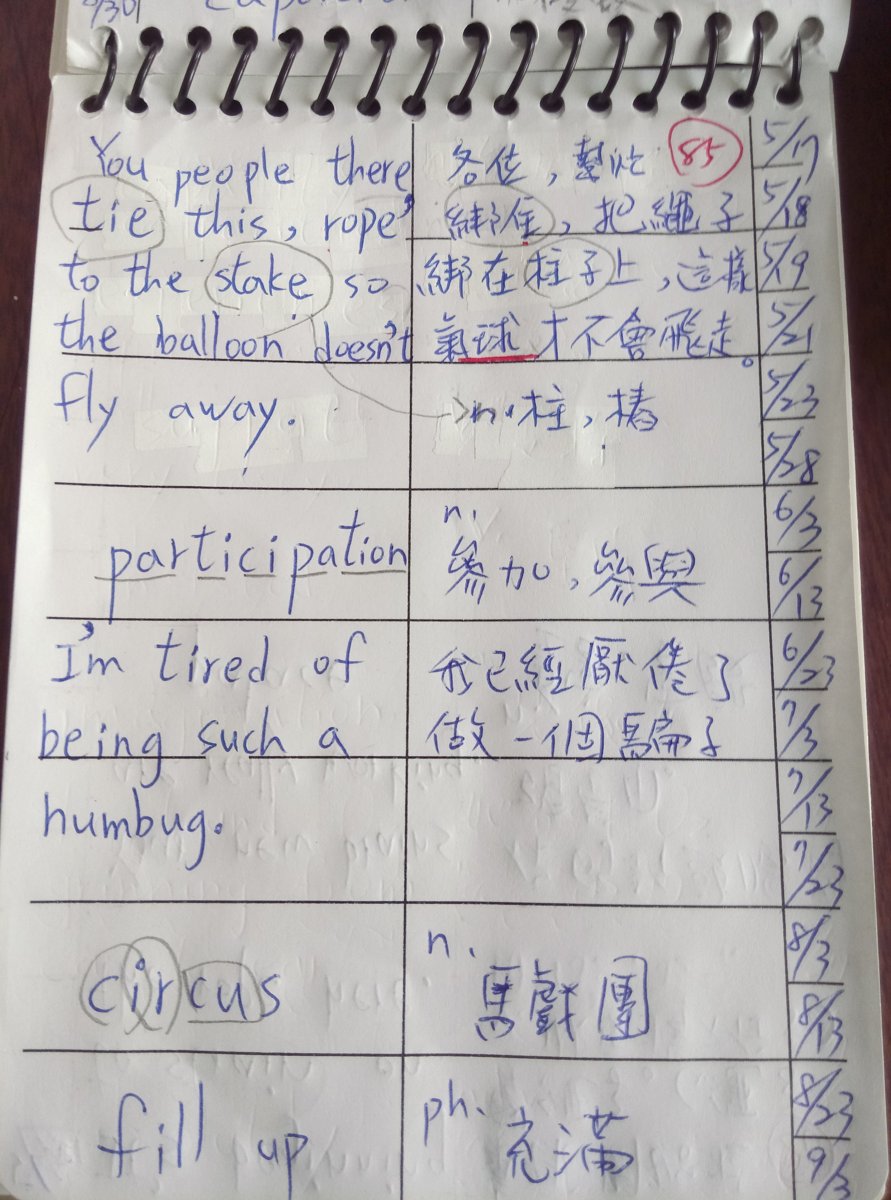 You people there
tie this, rope
to the stake so
the balloon doesn't
fly away.
各位，幫忙
85
綁住，把繩子
綁在柱子上，這樣
氣球才不會飛走。
n.柱，樁
participation
n.
參加，參與
I'm tired of
being such a
humbug.
我已經厭倦了
做一個騙子
circus
n.
馬戲團
fill up
ph.
充滿
5/17
5/18
5/19
5/21
5/23
5/28
6/3
6/13
6/23
7/3
7/13
7/23
8/3
8/13
8/23
9/3